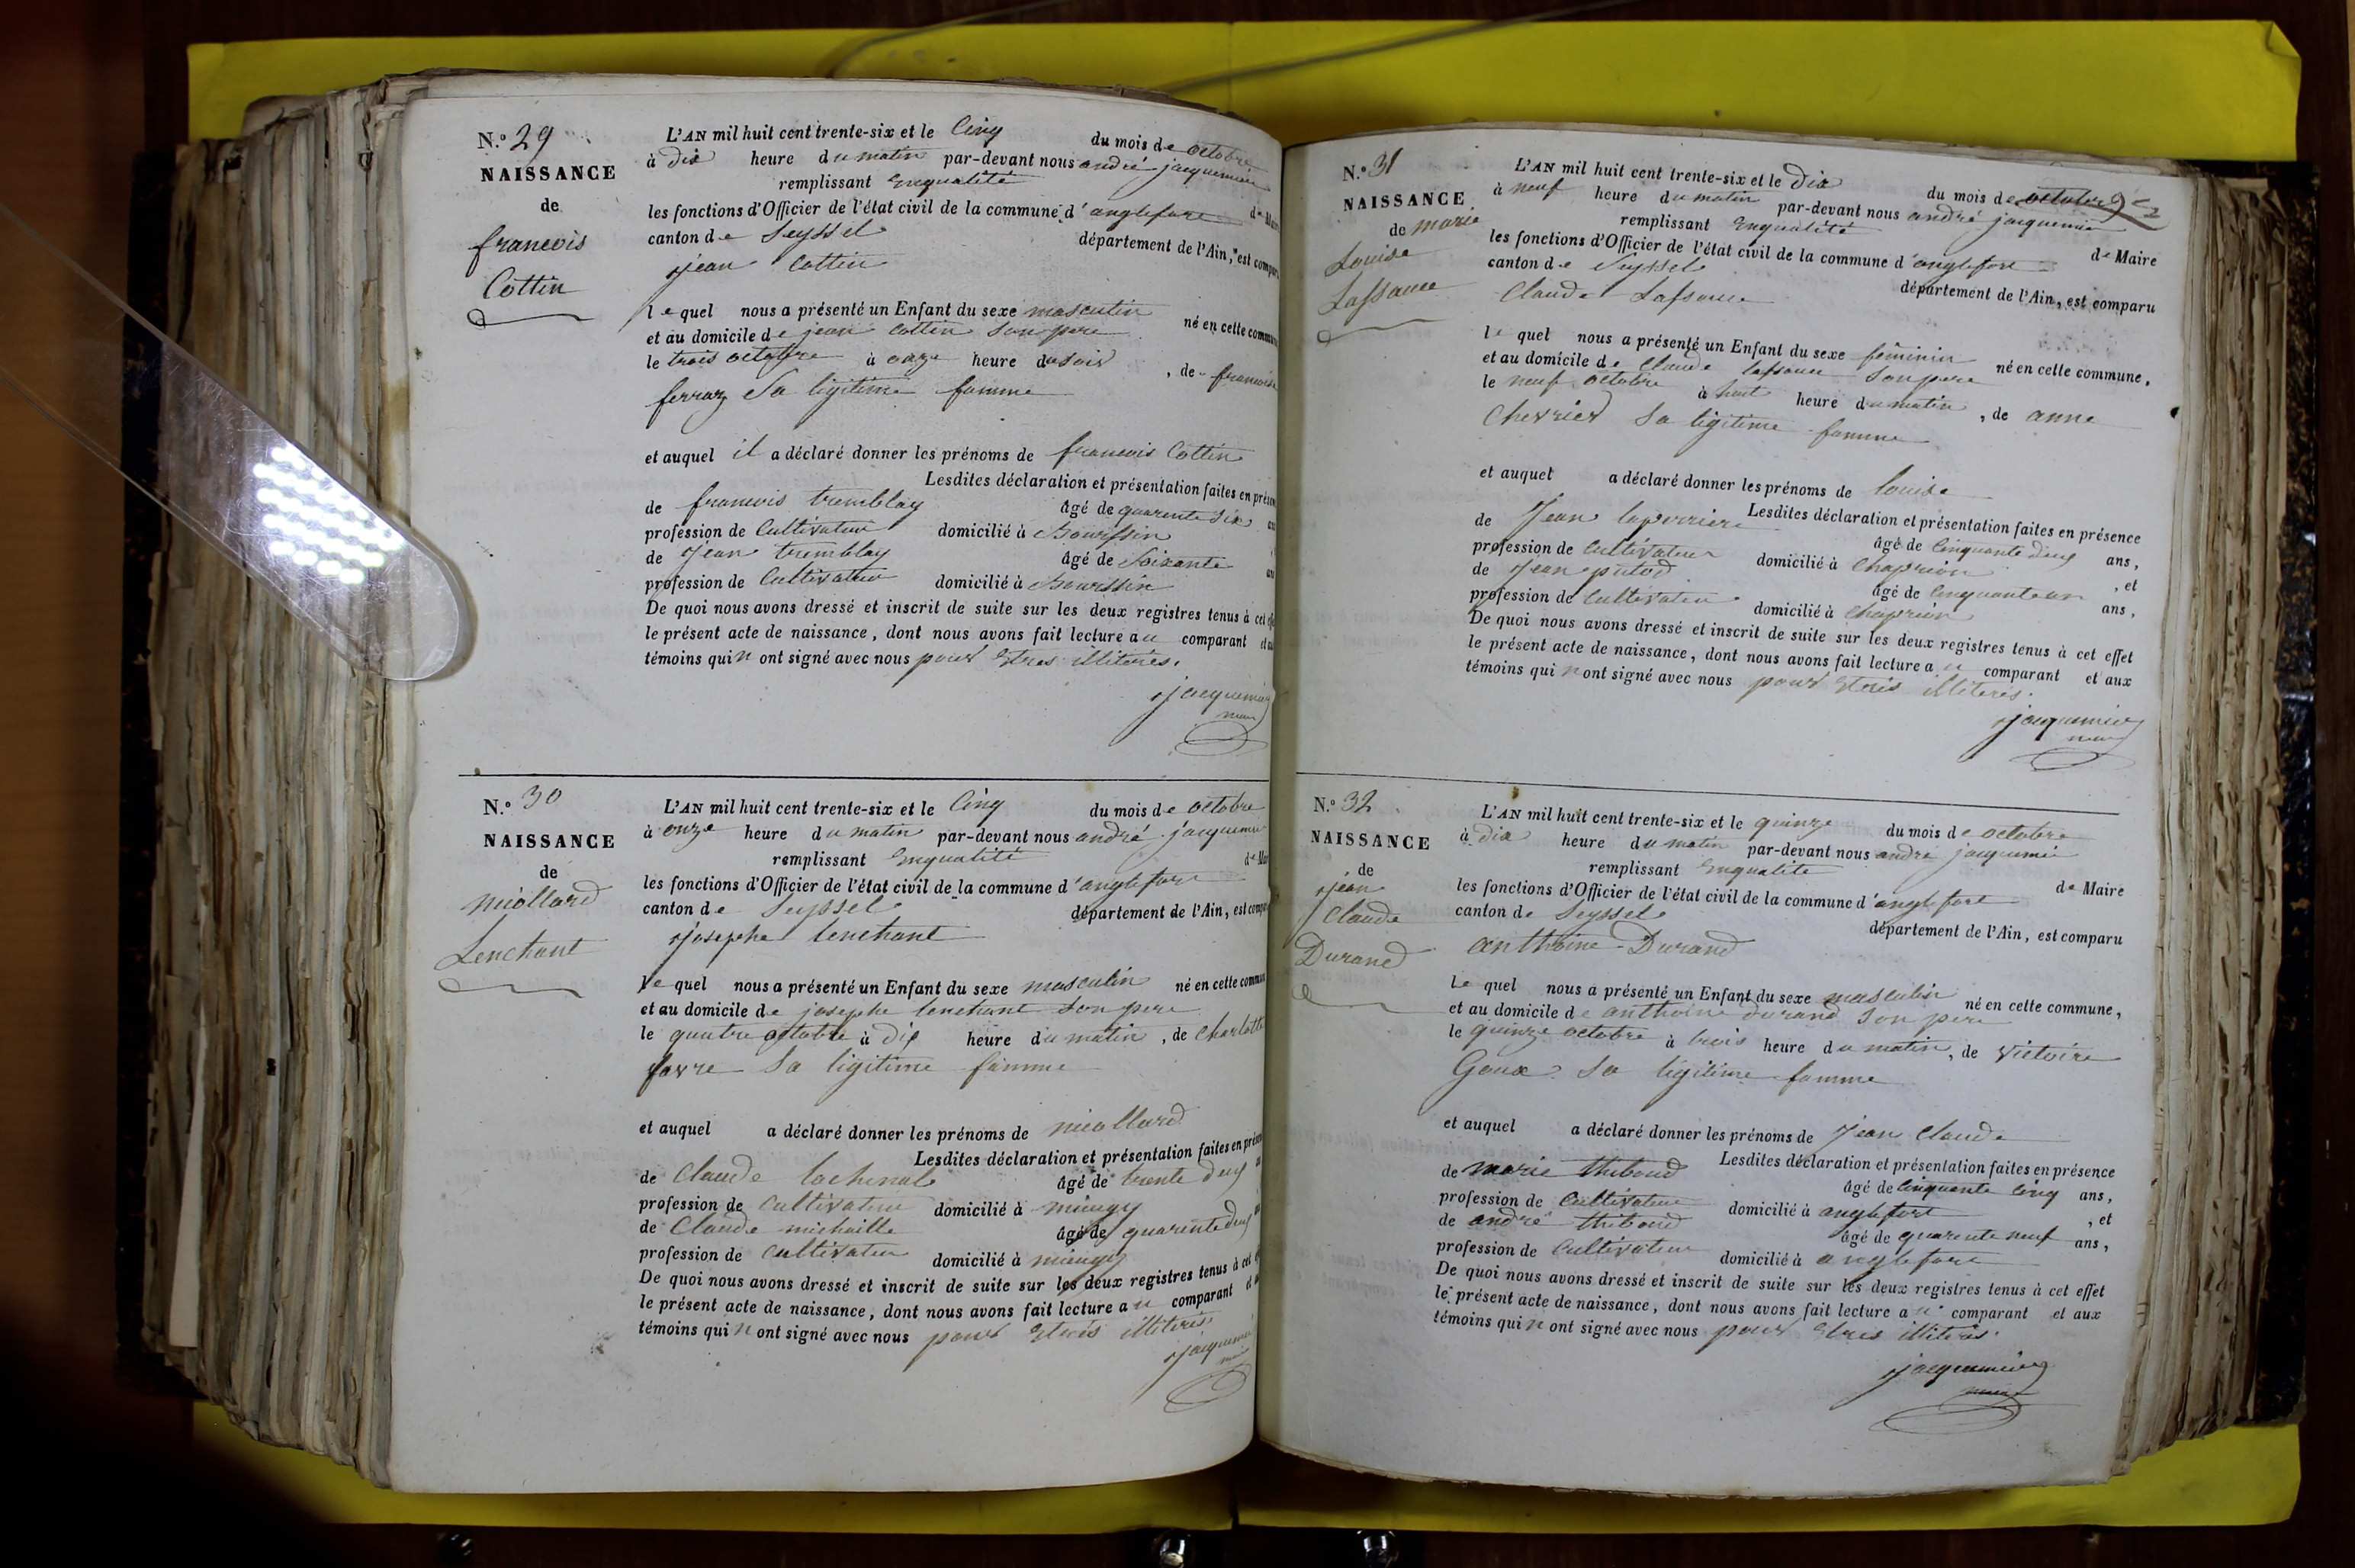 N.º 29
NAISSANCE
de
francois
Cottin
L'AN mil huit cent trente-six et le Cinq du mois de octobre
à dix heure du matin par-devant nous andré jacquemier
remplissant Enqualité de
les fonctions d'Officier de l'état civil de la commune d'anglefort
canton de Seyssel département de l'Ain, est
jean Cottin
lequel nous a présenté un Enfant du sexe masculin né en cette
et au domicile de jean cottin son pere
le trois octobre à onze heure du soir, de francoise
ferraz Sa ligitime famme
et auquel il a déclaré donner les prénoms de francois Cottin
Lesdites déclaration et présentation faites en
de francois tremblay âgé de quarente six
profession de Cultivateur domicilié à Bourssin
de jean tremblay âgé de Soixante
profession de Cultivateur domicilié à Bourssin
De quoi nous avons dressé et inscrit de suite sur les deux registres tenus à cet
le présent acte de naissance, dont nous avons fait lecture au comparant
témoins qui n ont signé avec nous pour Etres illiterés.
jacquemier
maire
N.º 30
NAISSANCE
de
miollard
Lenchant
L'AN mil huit cent trente-six et le Cinq du mois de octobre
à onze heure du matin par-devant nous andré jacquemier
remplissant Enqualité de
les fonctions d'Officier de l'état civil de la commune d'anglefort
canton de Seyssel département de l'Ain, est
josephe lenchant
lequel nous a présenté un Enfant du sexe masculin né en cette
et au domicile de josephe lenchant son pere
le quatre octobre à dix heure du matin, de Charlotte
favre Sa ligitime famme
et auquel a déclaré donner les prénoms de miollard
Lesdites déclaration et présentation faites en
de Claude lachenal âgé de trente deux
profession de Cultivateur domicilié à mieugy
de Claude michaille âgé de quarente deux
profession de Cultivateur domicilié à mieugy
De quoi nous avons dressé et inscrit de suite sur les deux registres tenus à cet
le présent acte de naissance, dont nous avons fait lecture au comparant
témoins qui n ont signé avec nous pour Etres illiterés.
jacquemier
N.º 31
NAISSANCE
de marie
Louise
Lassauce
L'AN mil huit cent trente-six et le Dix du mois de octobre
à neuf heure du matin par-devant nous andré jacquemier
remplissant Enqualité de Maire
les fonctions d'Officier de l'état civil de la commune d'anglefort
canton de Seyssel département de l'Ain, est comparu
Claude Lassauce
lequel nous a présenté un Enfant du sexe féminin né en cette commune,
et au domicile de Claude lassauce son pere
le neuf octobre à huit heure du matin, de anne
Chevrier Sa ligitime famme
et auquel a déclaré donner les prénoms de louise
Lesdites déclaration et présentation faites en présence
de Jean laperriere âgé de Cinquante deux ans,
profession de Cultivateur domicilié à Chaprion, et
de jean putod âgé de Cinquante un ans,
profession de Cultivateur domicilié à Chaprion
De quoi nous avons dressé et inscrit de suite sur les deux registres tenus à cet effet
le présent acte de naissance, dont nous avons fait lecture au comparant et aux
témoins qui n ont signé avec nous pour Etres illiterés.
jacquemier
maire
N.º 32
NAISSANCE
de
jean
Claude
Durand
L'AN mil huit cent trente-six et le quinze du mois de octobre
à Dix heure du matin par-devant nous andré jacquemier
remplissant Enqualité de Maire
les fonctions d'Officier de l'état civil de la commune d'anglefort
canton de Seyssel département de l'Ain, est comparu
anthoine Durand
Lequel nous a présenté un Enfant du sexe masculin né en cette commune,
et au domicile de anthoine durand son pere
le quinze octobre à trois heure du matin, de victoire
Goux Sa ligitime famme
et auquel a déclaré donner les prénoms de Jean Claude
Lesdites déclaration et présentation faites en présence
de marie thiboud âgé de Cinquante Cinq ans,
profession de Cultivateur domicilié à anglefort, et
de andré thiboud âgé de quarente neuf ans,
profession de Cultivateur domicilié à anglefort
De quoi nous avons dressé et inscrit de suite sur les deux registres tenus à cet effet
le présent acte de naissance, dont nous avons fait lecture au comparant et aux
témoins qui n ont signé avec nous pour Etres illiterés.
jacquemier
maire